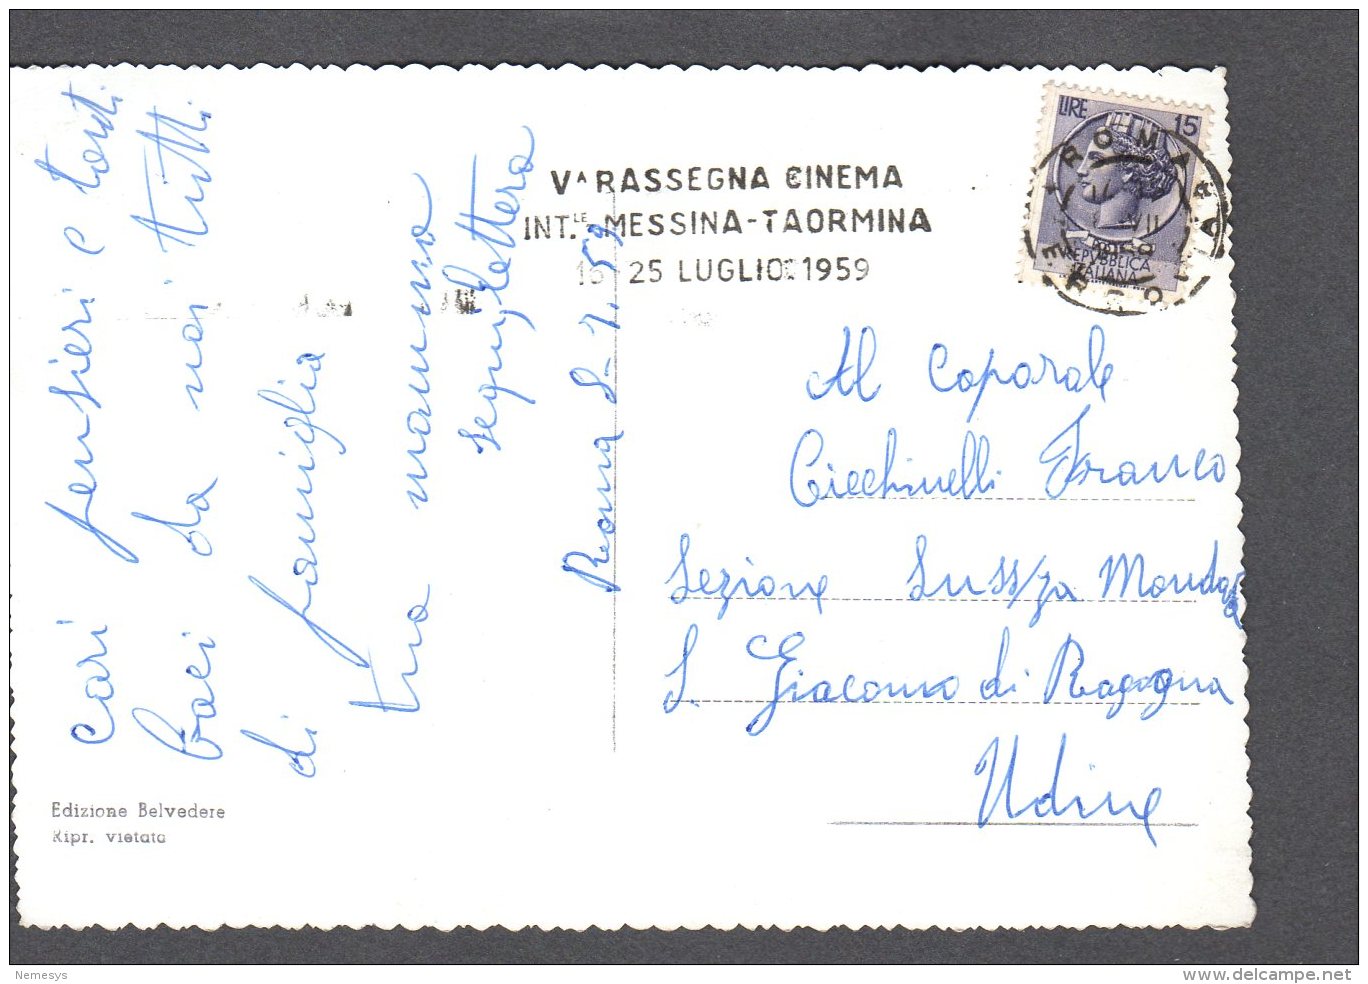 Cari pensieri e tanti
baci da noi tutti
di famiglia
tua mamma
segue lettera
Roma 8-7.59
V^A RASSEGNA CINEMA
INT.LE MESSINA-TAORMINA
25 LUGLIO 1959
LIRE 15
ROMA
REPVBBLICA
ITALIANA
Al Caporale
Cicchinelli Franco
Sezione
S. Giacomo di Ragogna
Udine
Edizione Belvedere
Ripr. vietata
Nemesys
www.delcampe.net